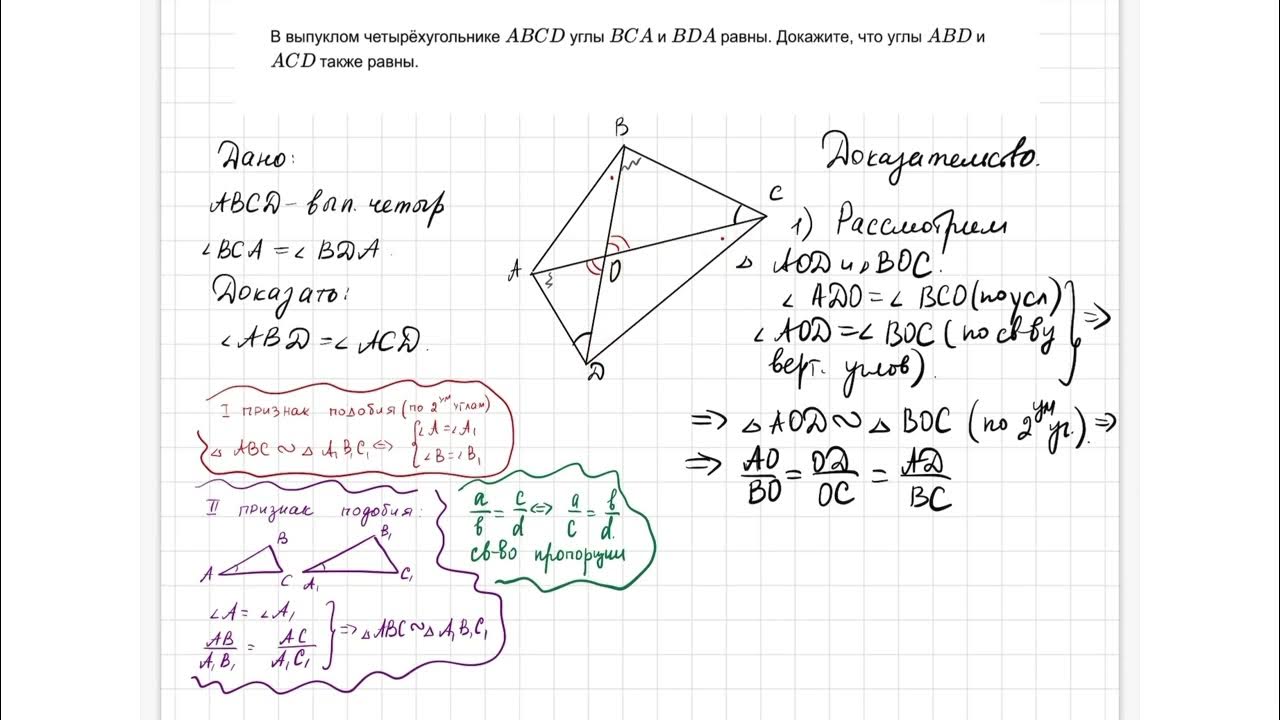 В выпуклом четырёхугольнике ABCD углы BCA и BDA равны. Докажите, что углы ABD и
ACD также равны.
Дано:
ABCD – вып. четыр
∠BCA = ∠BDA
Доказать:
∠ABD = ∠ACD.
B
C
A
O
D
Доказательство.
1) Рассмотрим
△ AOD и △ BOC.
∠ ADO = ∠ BCO (по усл)
∠ AOD = ∠ BOC (по св-ву
верт. углов).
} =>
=> △ AOD ∾ △ BOC (по 2ум уг.) =>
=> AO/BO = OD/OC = AD/BC
I признак подобия (по 2ум углам)
△ ABC ∾ △ A₁B₁C₁ <=> { ∠A = ∠A₁
∠B = ∠B₁
II признак подобия:
B
A
C
B₁
A₁
C₁
∠A = ∠A₁
AB/A₁B₁ = AC/A₁C₁
} => △ABC ∾ △ A₁B₁C₁
a/b = c/d <=> a/c = b/d.
св-во пропорции